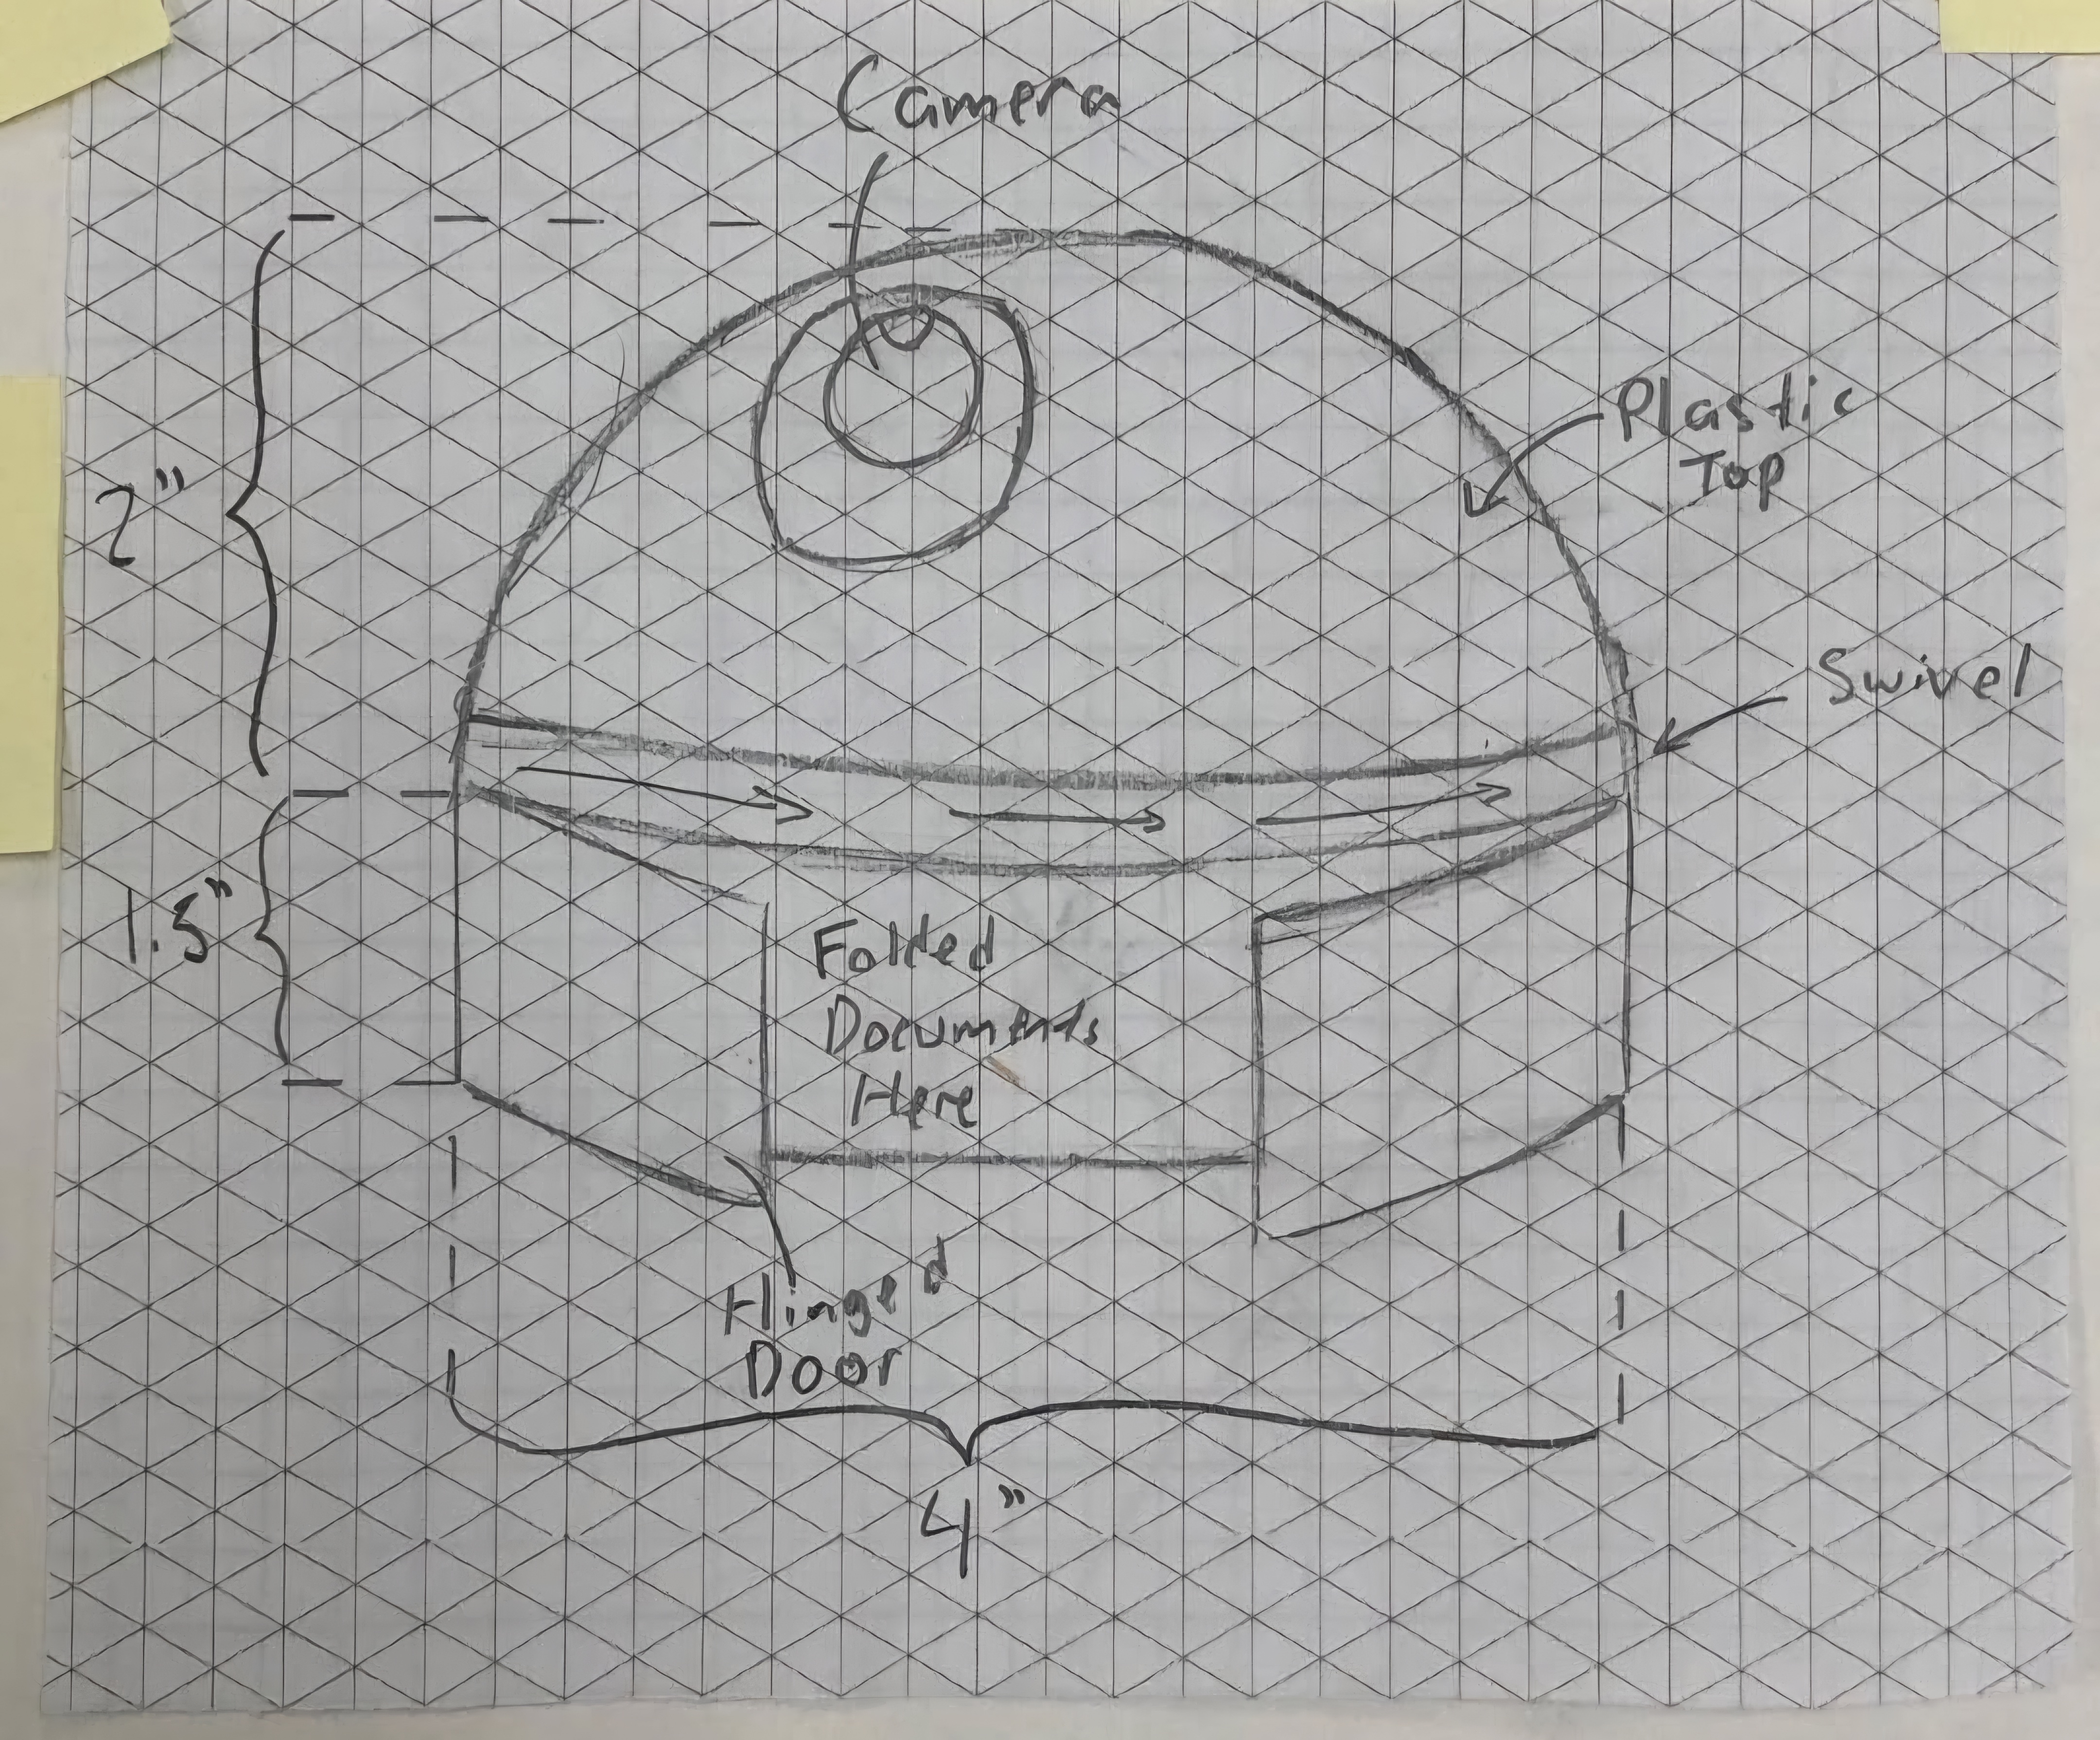 Camera
Plastic
Top
2"
Swivel
1.5"
Folded
Documents
Here
Hinged
Door
4"